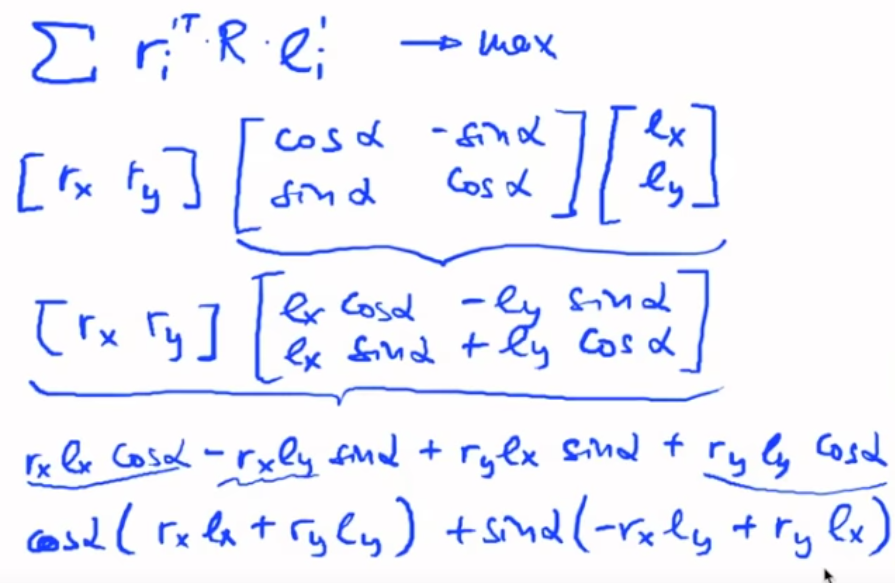 ∑ rᵢ'ᵀ · R · ℓᵢ' → max
[rₓ r_y] [cos α -sin α; sin α cos α] [ℓₓ; ℓ_y]
[rₓ r_y] [ℓₓ cos α - ℓ_y sin α; ℓₓ sin α + ℓ_y cos α]
rₓ ℓₓ cos α - rₓ ℓ_y sin α + r_y ℓₓ sin α + r_y ℓ_y cos α
cos α (rₓ ℓₓ + r_y ℓ_y) + sin α (-rₓ ℓ_y + r_y ℓₓ)